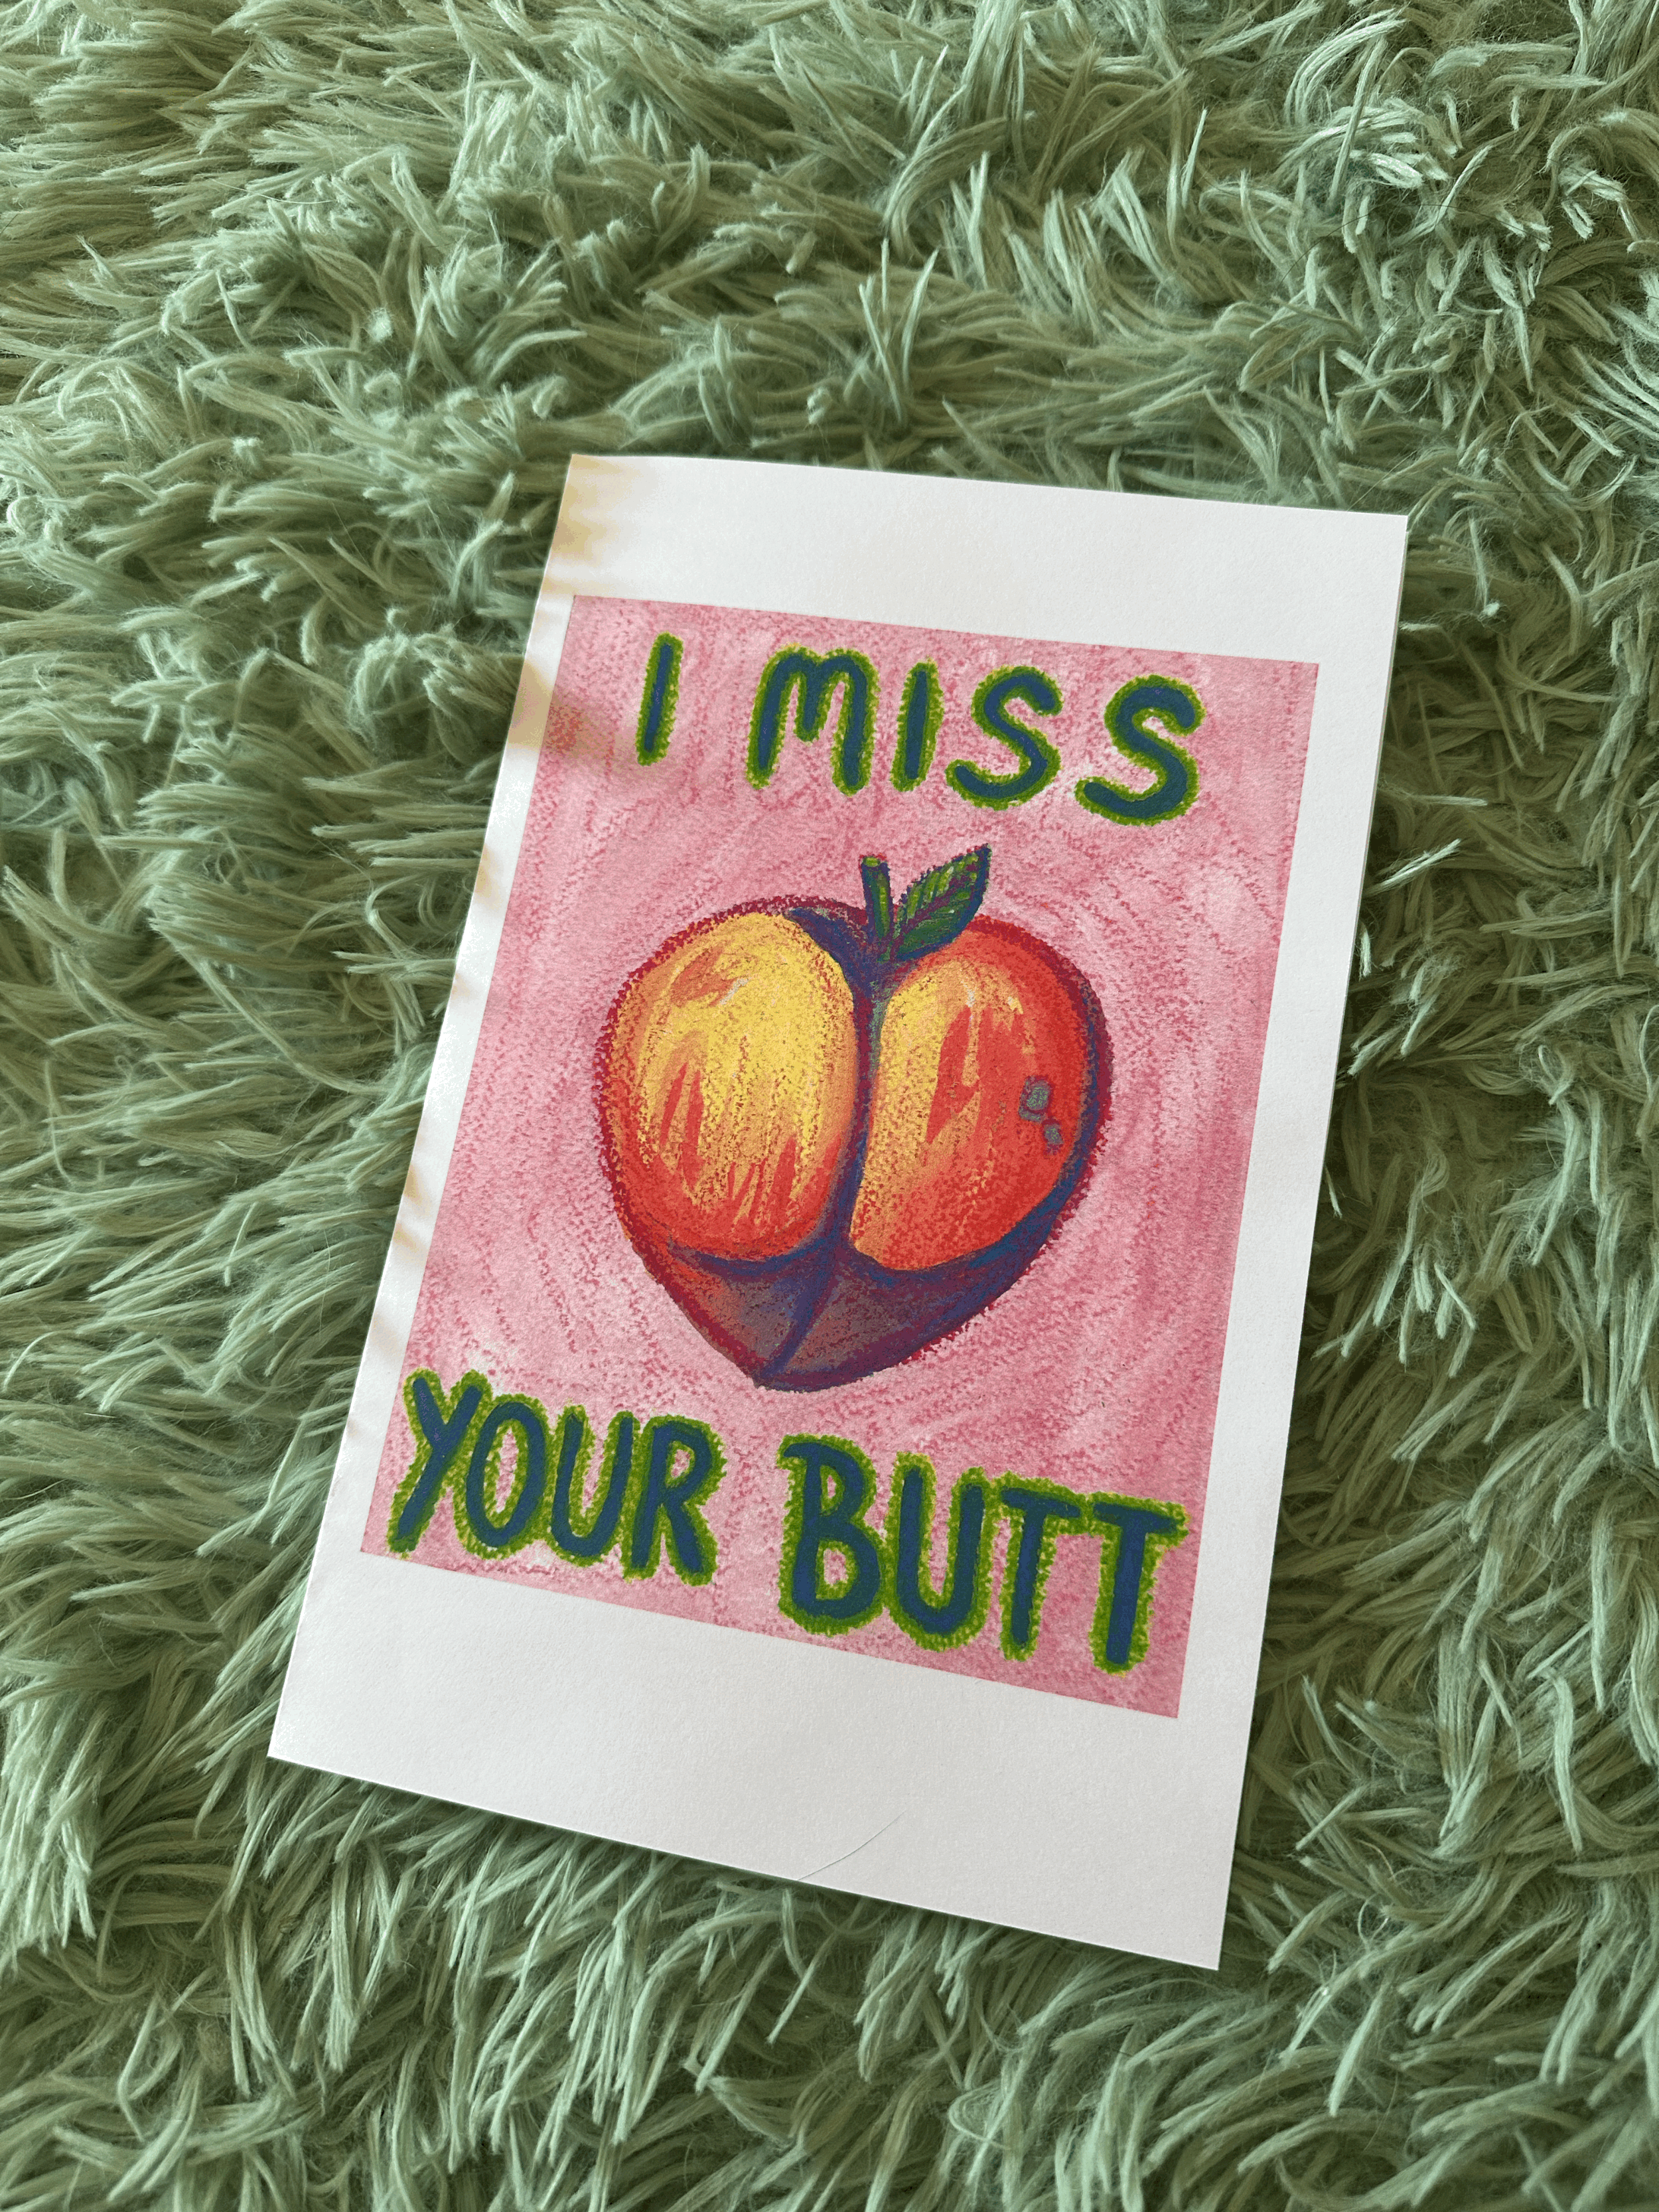 I MISS
YOUR BUTT